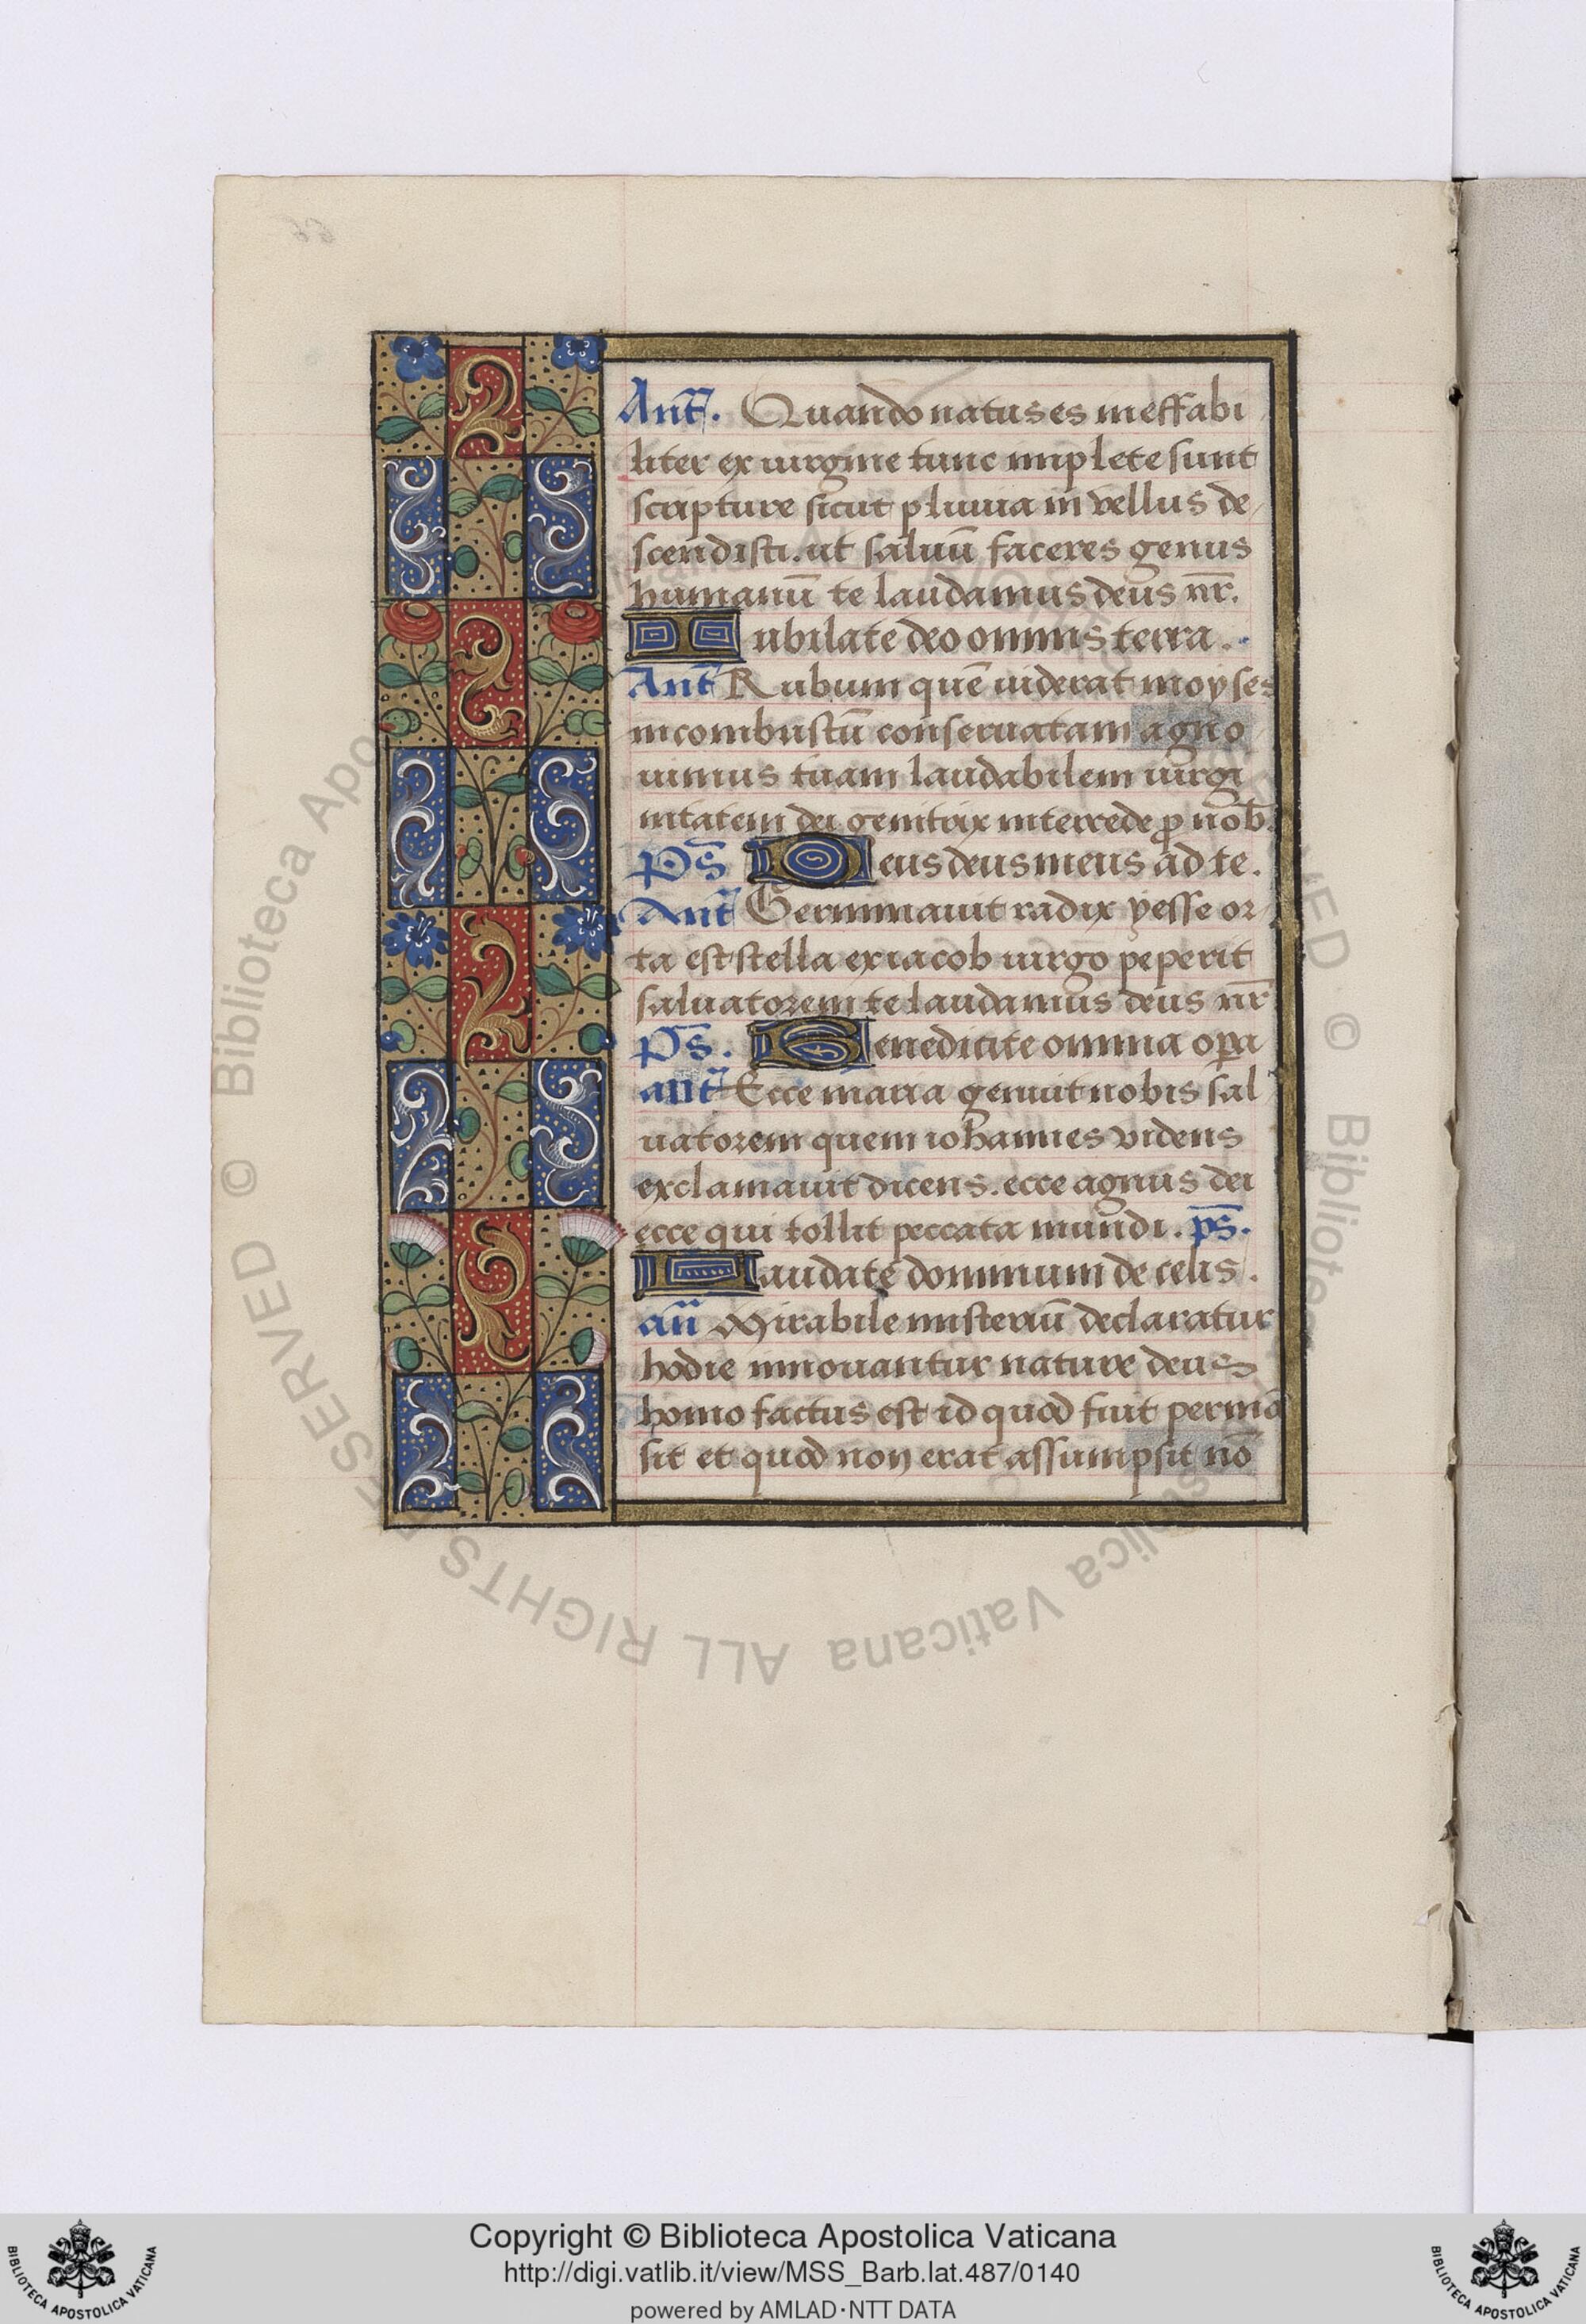 Ant̄. Quando natus es ineffabi
liter ex uirgine tunc implete sunt
scripture sicut pluuia in vellus de
scendisti. ut saluū faceres genus
humanū te laudamus deus nr̄.
Iubilate deo omnis terra.
Ant̄ Rubum quē uiderat moyses
incombustū conseruatam agno
uimus tuam laudabilem uirgi
nitatem dei genitrix intercede ꝓ nob̄.
Ps̄ Deus deus meus ad te.
Ant̄ Germinauit radix yesse or
ta est stella ex iacob uirgo peperit
saluatorem te laudamus deus nr̄
Ps̄. Benedicite omnia oꝑa
ant̄ Ecce maria genuit nobis sal
uatorem quem iohannes videns
exclamauit dicens. ecce agnus dei
ecce qui tollit peccata mundi. ps̄.
Laudate dominum de celis.
an̄ Mirabile misteriū declaratur
hodie innouantur nature deus
homo factus est id quod fuit permā
sit et quod non erat assumpsit nō
© Biblioteca Apostolica Vaticana ALL RIGHTS RESERVED
Copyright © Biblioteca Apostolica Vaticana
http://digi.vatlib.it/view/MSS_Barb.lat.487/0140
powered by AMLAD·NTT DATA
BIBLIOTECA APOSTOLICA VATICANA
BIBLIOTECA APOSTOLICA VATICANA